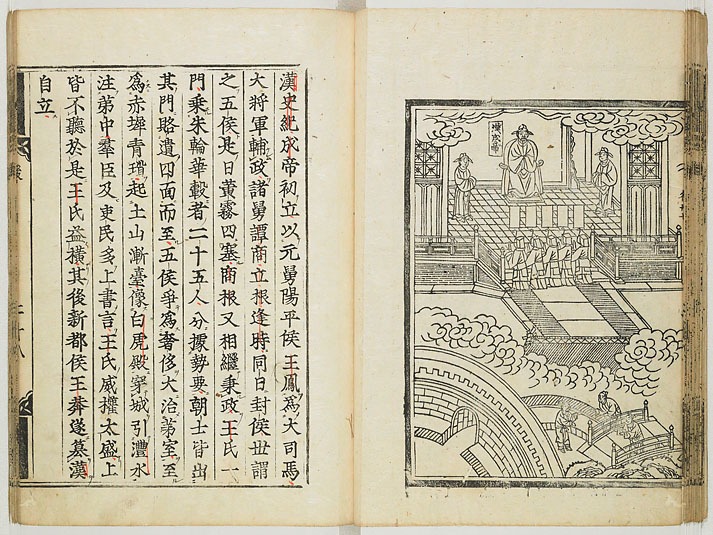 漢成帝
漢史紀成帝初立以元舅陽平侯王鳳爲大司馬
大將軍輔政諸舅譚商立根逢時同日封侯世謂
之五侯是日黃霧四塞商根又相繼秉政王氏一
門乘朱輪華轂者二十五人分據勢要朝士皆出
其門賂遺四面而至五侯爭爲奢侈大治第室至
爲赤墀青瑣起土山漸臺像白虎殿穿城引灃水
注第中羣臣及吏民多上書言王氏威權太盛上
皆不聽於是王氏益橫其後新都侯王莽遂篡漢
自立
二十八